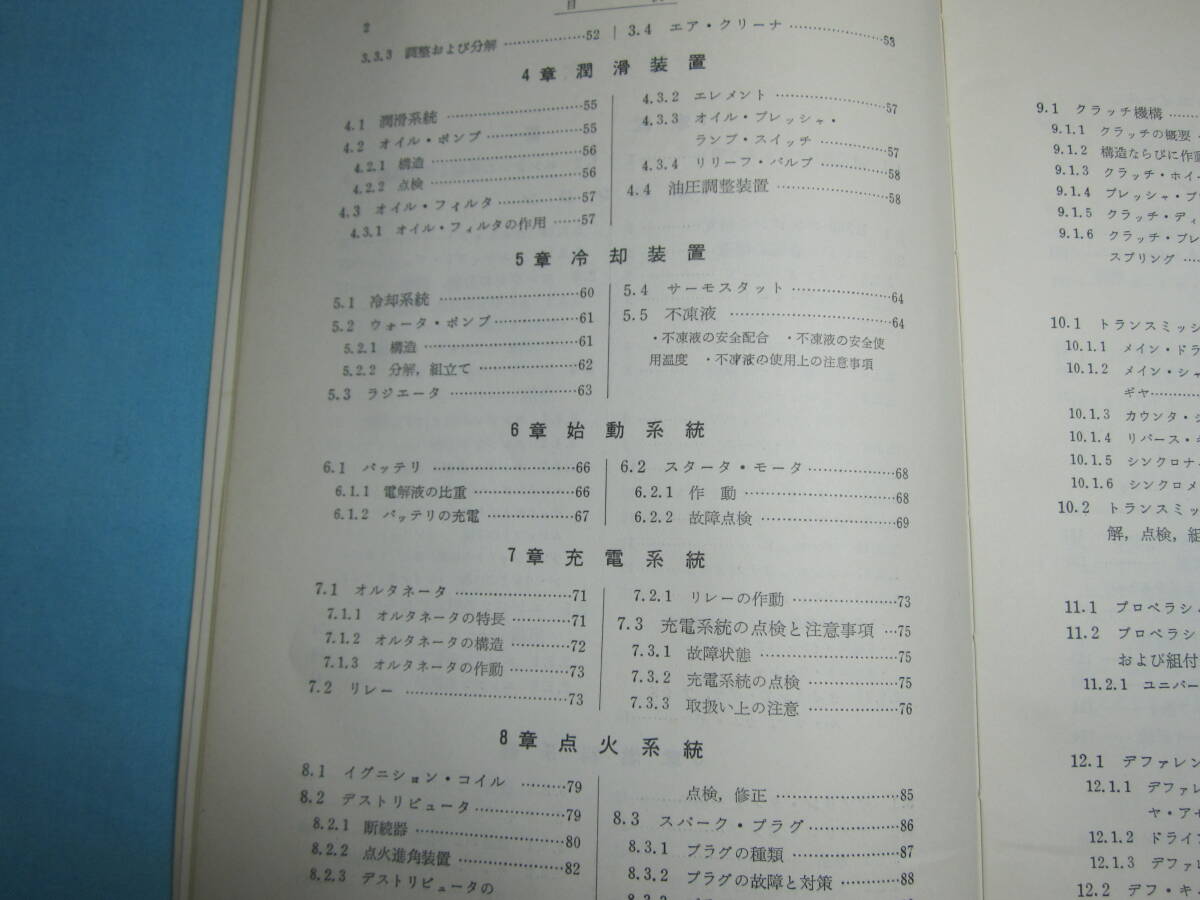 目
2
3.3.3 調整および分解 ……………52
3.4 エア・クリーナ ……………53
4章 潤滑装置
4.1 潤滑系統 ……………55
4.2 オイル・ポンプ ……………55
4.2.1 構造 ……………56
4.2.2 点検 ……………56
4.3 オイル・フィルタ ……………57
4.3.1 オイル・フィルタの作用 ……57
4.3.2 エレメント ……………57
4.3.3 オイル・プレッシャ・
ランプ・スイッチ ……………57
4.3.4 リリーフ・バルブ ……………58
4.4 油圧調整装置 ……………58
5章 冷却装置
5.1 冷却系統 ……………60
5.2 ウォータ・ポンプ ……………61
5.2.1 構造 ……………61
5.2.2 分解，組立て ……………62
5.3 ラジエータ ……………63
5.4 サーモスタット ……………64
5.5 不凍液 ……………64
・不凍液の安全配合 ・不凍液の安全使
用温度 ・不凍液の使用上の注意事項
6章 始動系統
6.1 バッテリ ……………66
6.1.1 電解液の比重 ……………66
6.1.2 バッテリの充電 ……………67
6.2 スタータ・モータ ……………68
6.2.1 作 動 ……………68
6.2.2 故障点検 ……………69
7章 充電系統
7.1 オルタネータ ……………71
7.1.1 オルタネータの特長 ……………71
7.1.2 オルタネータの構造 ……………72
7.1.3 オルタネータの作動 ……………73
7.2 リレー ……………73
7.2.1 リレーの作動 ……………73
7.3 充電系統の点検と注意事項 …75
7.3.1 故障状態 ……………75
7.3.2 充電系統の点検 ……………75
7.3.3 取扱い上の注意 ……………76
8章 点火系統
8.1 イグニション・コイル ………79
8.2 デストリビュータ ……………79
8.2.1 断続器 ……………80
8.2.2 点火進角装置 ……………82
8.2.3 デストリビュータの
点検，修正 ……………85
8.3 スパーク・プラグ ……………86
8.3.1 プラグの種類 ……………87
8.3.2 プラグの故障と対策 …………88
9.1 クラッチ機構 ……
9.1.1 クラッチの概要
9.1.2 構造ならびに作動
9.1.3 クラッチ・ホイ
9.1.4 プレッシャ・プ
9.1.5 クラッチ・ディ
9.1.6 クラッチ・プレ
スプリング ……
10.1 トランスミッシ
10.1.1 メイン・ドラ
10.1.2 メイン・シャ
ギヤ……
10.1.3 カウンタ・シ
10.1.4 リバース・ギ
10.1.5 シンクロナ
10.1.6 シンクロメ
10.2 トランスミッ
解，点検，組
11.1 プロペラシャ
11.2 プロペラシ
および組付
11.2.1 ユニバー
12.1 デファレン
12.1.1 デファレ
ヤ・アセ
12.1.2 ドライブ
12.1.3 デファレ
12.2 デフ・キ